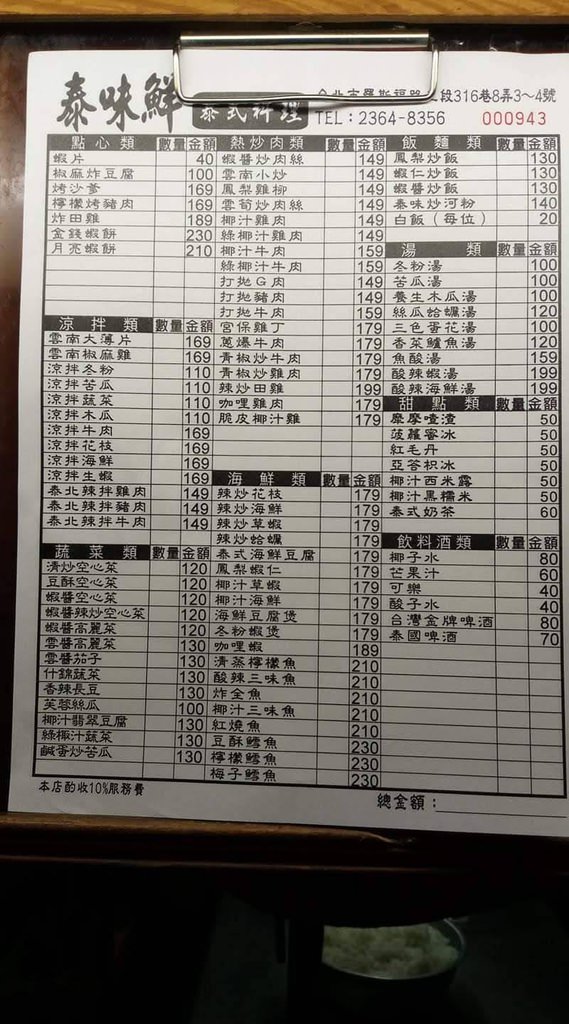 泰味鮮 泰式料理
台北市羅斯福路 段316巷8弄3～4號
TEL：2364-8356 000943
點心類 數量 金額
蝦片 40
椒麻炸豆腐 100
烤沙爹 169
檸檬烤豬肉 169
炸田雞 189
金錢蝦餅 230
月亮蝦餅 210
涼拌類 數量 金額
雲南大薄片 169
雲南椒麻雞 169
涼拌冬粉 110
涼拌苦瓜 110
涼拌蔬菜 110
涼拌木瓜 110
涼拌牛肉 169
涼拌花枝 169
涼拌海鮮 169
涼拌生蝦 169
泰北辣拌雞肉 149
泰北辣拌豬肉 149
泰北辣拌牛肉 149
蔬菜類 數量 金額
清炒空心菜 120
豆酥空心菜 120
蝦醬空心菜 120
蝦醬辣炒空心菜 120
蝦醬高麗菜 120
雲醬高麗菜 130
雲醬茄子 130
什錦蔬菜 130
香辣長豆 130
芙蓉絲瓜 100
椰汁翡翠豆腐 130
綠椰汁蔬菜 130
鹹蛋炒苦瓜 130
本店酌收10%服務費
熱炒肉類 數量 金額
蝦醬炒肉絲 149
雲南小炒 149
鳳梨雞柳 149
雲筍炒肉絲 149
椰汁雞肉 149
綠椰汁雞肉 149
椰汁牛肉 159
綠椰汁牛肉 159
打拋G肉 149
打拋豬肉 149
打拋牛肉 159
宮保雞丁 179
蔥爆牛肉 179
青椒炒牛肉 179
青椒炒雞肉 179
辣炒田雞 199
咖哩雞肉 179
脆皮椰汁雞 179
海鮮類 數量 金額
辣炒花枝 179
辣炒海鮮 179
辣炒草蝦 179
辣炒蛤蠣 179
泰式海鮮豆腐 179
鳳梨蝦仁 179
椰汁草蝦 179
椰汁海鮮 179
海鮮豆腐煲 179
冬粉蝦煲 179
咖哩蝦 189
清蒸檸檬魚 210
酸辣三味魚 210
炸全魚 210
椰汁三味魚 210
紅燒魚 210
豆酥鱈魚 230
檸檬鱈魚 230
梅子鱈魚 230
飯麵類 數量 金額
鳳梨炒飯 130
蝦仁炒飯 130
蝦醬炒飯 130
泰味炒河粉 140
白飯（每位） 20
湯類 數量 金額
冬粉湯 100
苦瓜湯 100
養生木瓜湯 100
絲瓜蛤蠣湯 120
三色蛋花湯 100
香菜鱸魚湯 120
魚酸湯 159
酸辣蝦湯 199
酸辣海鮮湯 199
甜點類 數量 金額
摩摩喳渣 50
菠蘿蜜冰 50
紅毛丹 50
亞答枳冰 50
椰汁西米露 50
椰汁黑糯米 50
泰式奶茶 60
飲料酒類 數量 金額
椰子水 80
芒果汁 60
可樂 40
酸子水 40
台灣金牌啤酒 80
泰國啤酒 70
總金額：